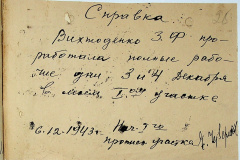 Справка
Вихтоденко З.Ф про-
работала полные рабо-
чие дни, 3 и 4 Декабря
в моем I ом участке
6.12.1943г. Нач. 1го
участка